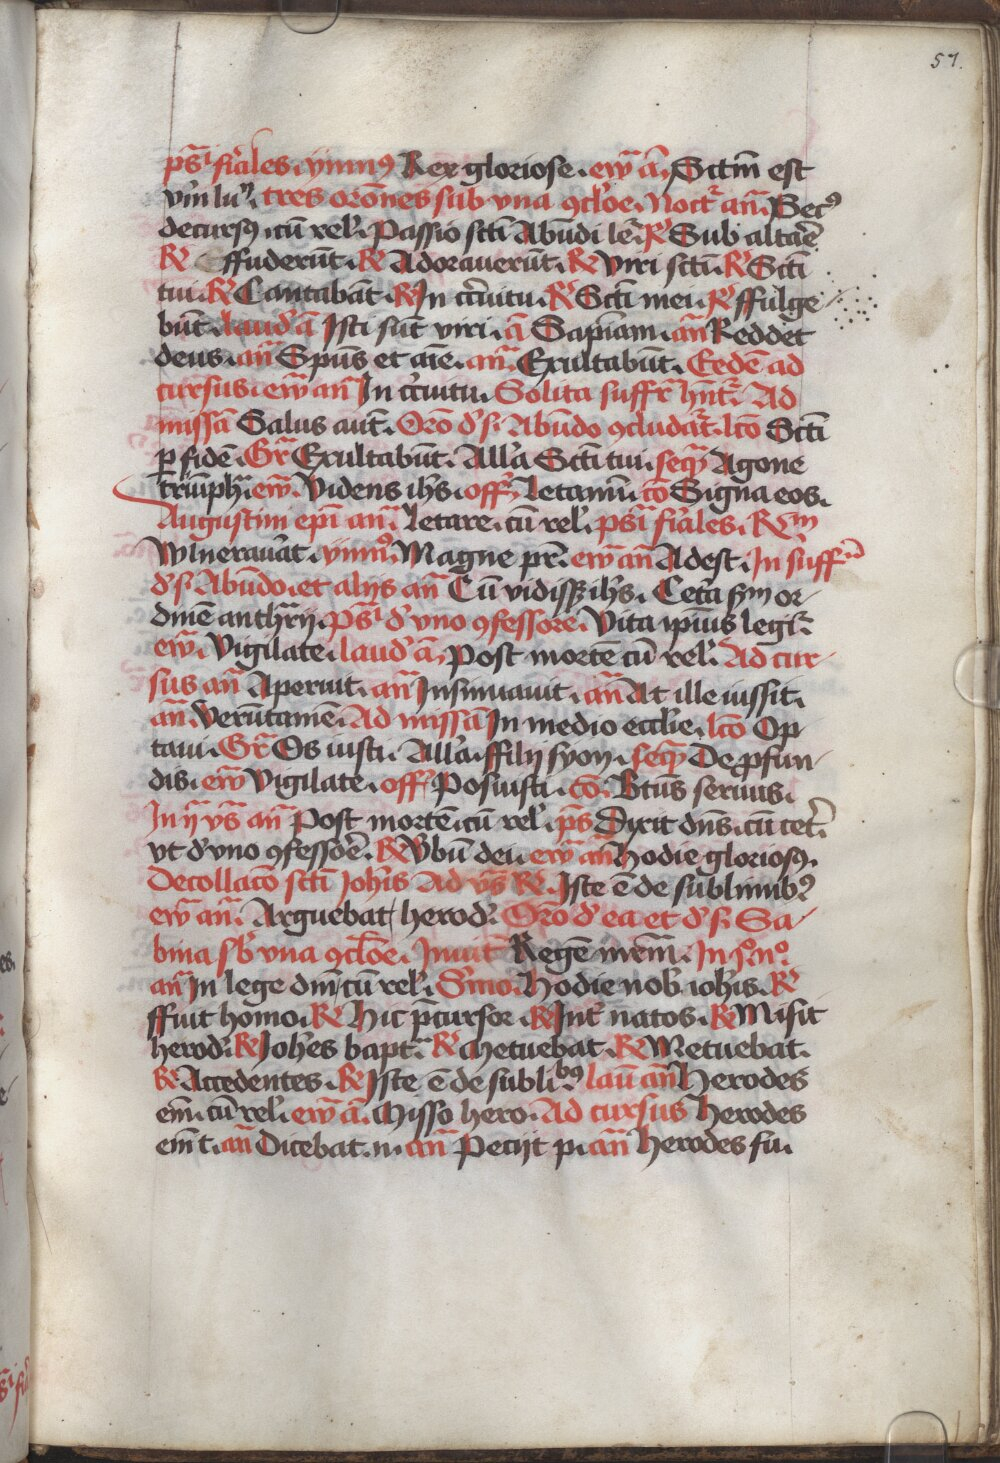 57.
ps̄l fīales. ymnꝰ Rex gloriose. ew̄ ā. Sctm̄ est
vīn luꝫ. tres orōnes sub vna ꝯclōe. Noct͛ an̄. Secꝰ
decursꝰ. cū rel͛. Passio scti Abūdi le͛. ℟ Sub altarē
℟ ffuderūt. ℟ Adorauerūt. ℟ Viri scti. ℟ Scti
tui. ℟ Cantabāt. ℟ In cīcuitu. ℟ Scti mei. ℟ ffulge
būt. laud͛ ā Isti sūt viri. ā Sapiām. an̄ Reddet
deus. an̄ Sp̄us et aīe. an̄. Exultabūt. Eedē ad
cursus. ew̄ an̄ In cīcuitu. Solita suffr͛ hn̄t͛. Ad
missā Salus aūt. Orō d͛ s. Abūdo ꝯcludat͛. lcō Scti
ꝑ fidē. Gr̄ Exultabūt. All͛a Scti tui. seq̄ Agone
triūph͛. ew̄. Videns ih̄s. off͛. Letamī. cō Signa eos.
Augustini ep̄i an̄. Letare. cū rel͛. ps̄l fīales. ℟m
Wlnerauāt. ymnꝰ. Magne pr̄. ew̄ an̄ Adest. In suff͛
d͛ s. Abūdo. et alijs an̄ Cū vidissꝫ ih̄s. Cet͛a sym or
dinē anthr̄ij. Ps̄l d͛ vno ꝯfessore. Vita ipīus legit͛.
ew̄. Vigilate. laud͛ ā. Post mortē cū rel͛. Ad cur
sus an̄ Aperuit. an̄ Insinuauit. an̄ At ille iussit.
an̄. Verūtamē. Ad missā In medio ecclīe. lcō Op
taui. Gr̄ Os iusti. All͛a. ffilij syon. seq̄ De ꝓfun
dis. ew̄ Vigilate. off͛ Posuisti. cō. Btūs seruus.
In ij v͛s an̄ Post mortē. cū rel͛. ps̄ Dixit dn̄s. cū cet͛.
vt d͛ vno ꝯfessoē. ℟ v͛bū dei. ew̄ an̄ Hodie gloriosꝰ.
Decollacō scti Joh̄is Ad v͛s ℟. Iste ē de sublimibꝰ
ew̄ an̄. Arguebat herod͛. Orō d͛ ea et d͛ s. Sa
bina sb͛ vna ꝯclōe. Inuit͛ Regē nr̄m. In pͦ nͦ.
an̄ In lege dn̄i cū rel͛. S͛mo. Hodie nob͛ ioh̄is. ℟
ffuit homo. ℟ Hic p̄cursor. ℟ Int͛ natos. ℟ Misit
herod͛. ℟ Joh̄es bapt͛. ℟ Metuebat. ℟ Metuebat.
℟ Accedentes. ℟ Iste ē de sublibꝰ lau͛ an̄ Herodes
eīn. cū rel͛. ew̄ ā. Misso hero. Ad cursus Herodes
eīn t. an̄ Dicebat. ii. an̄ Pecijt p. an̄ Herodes fu.